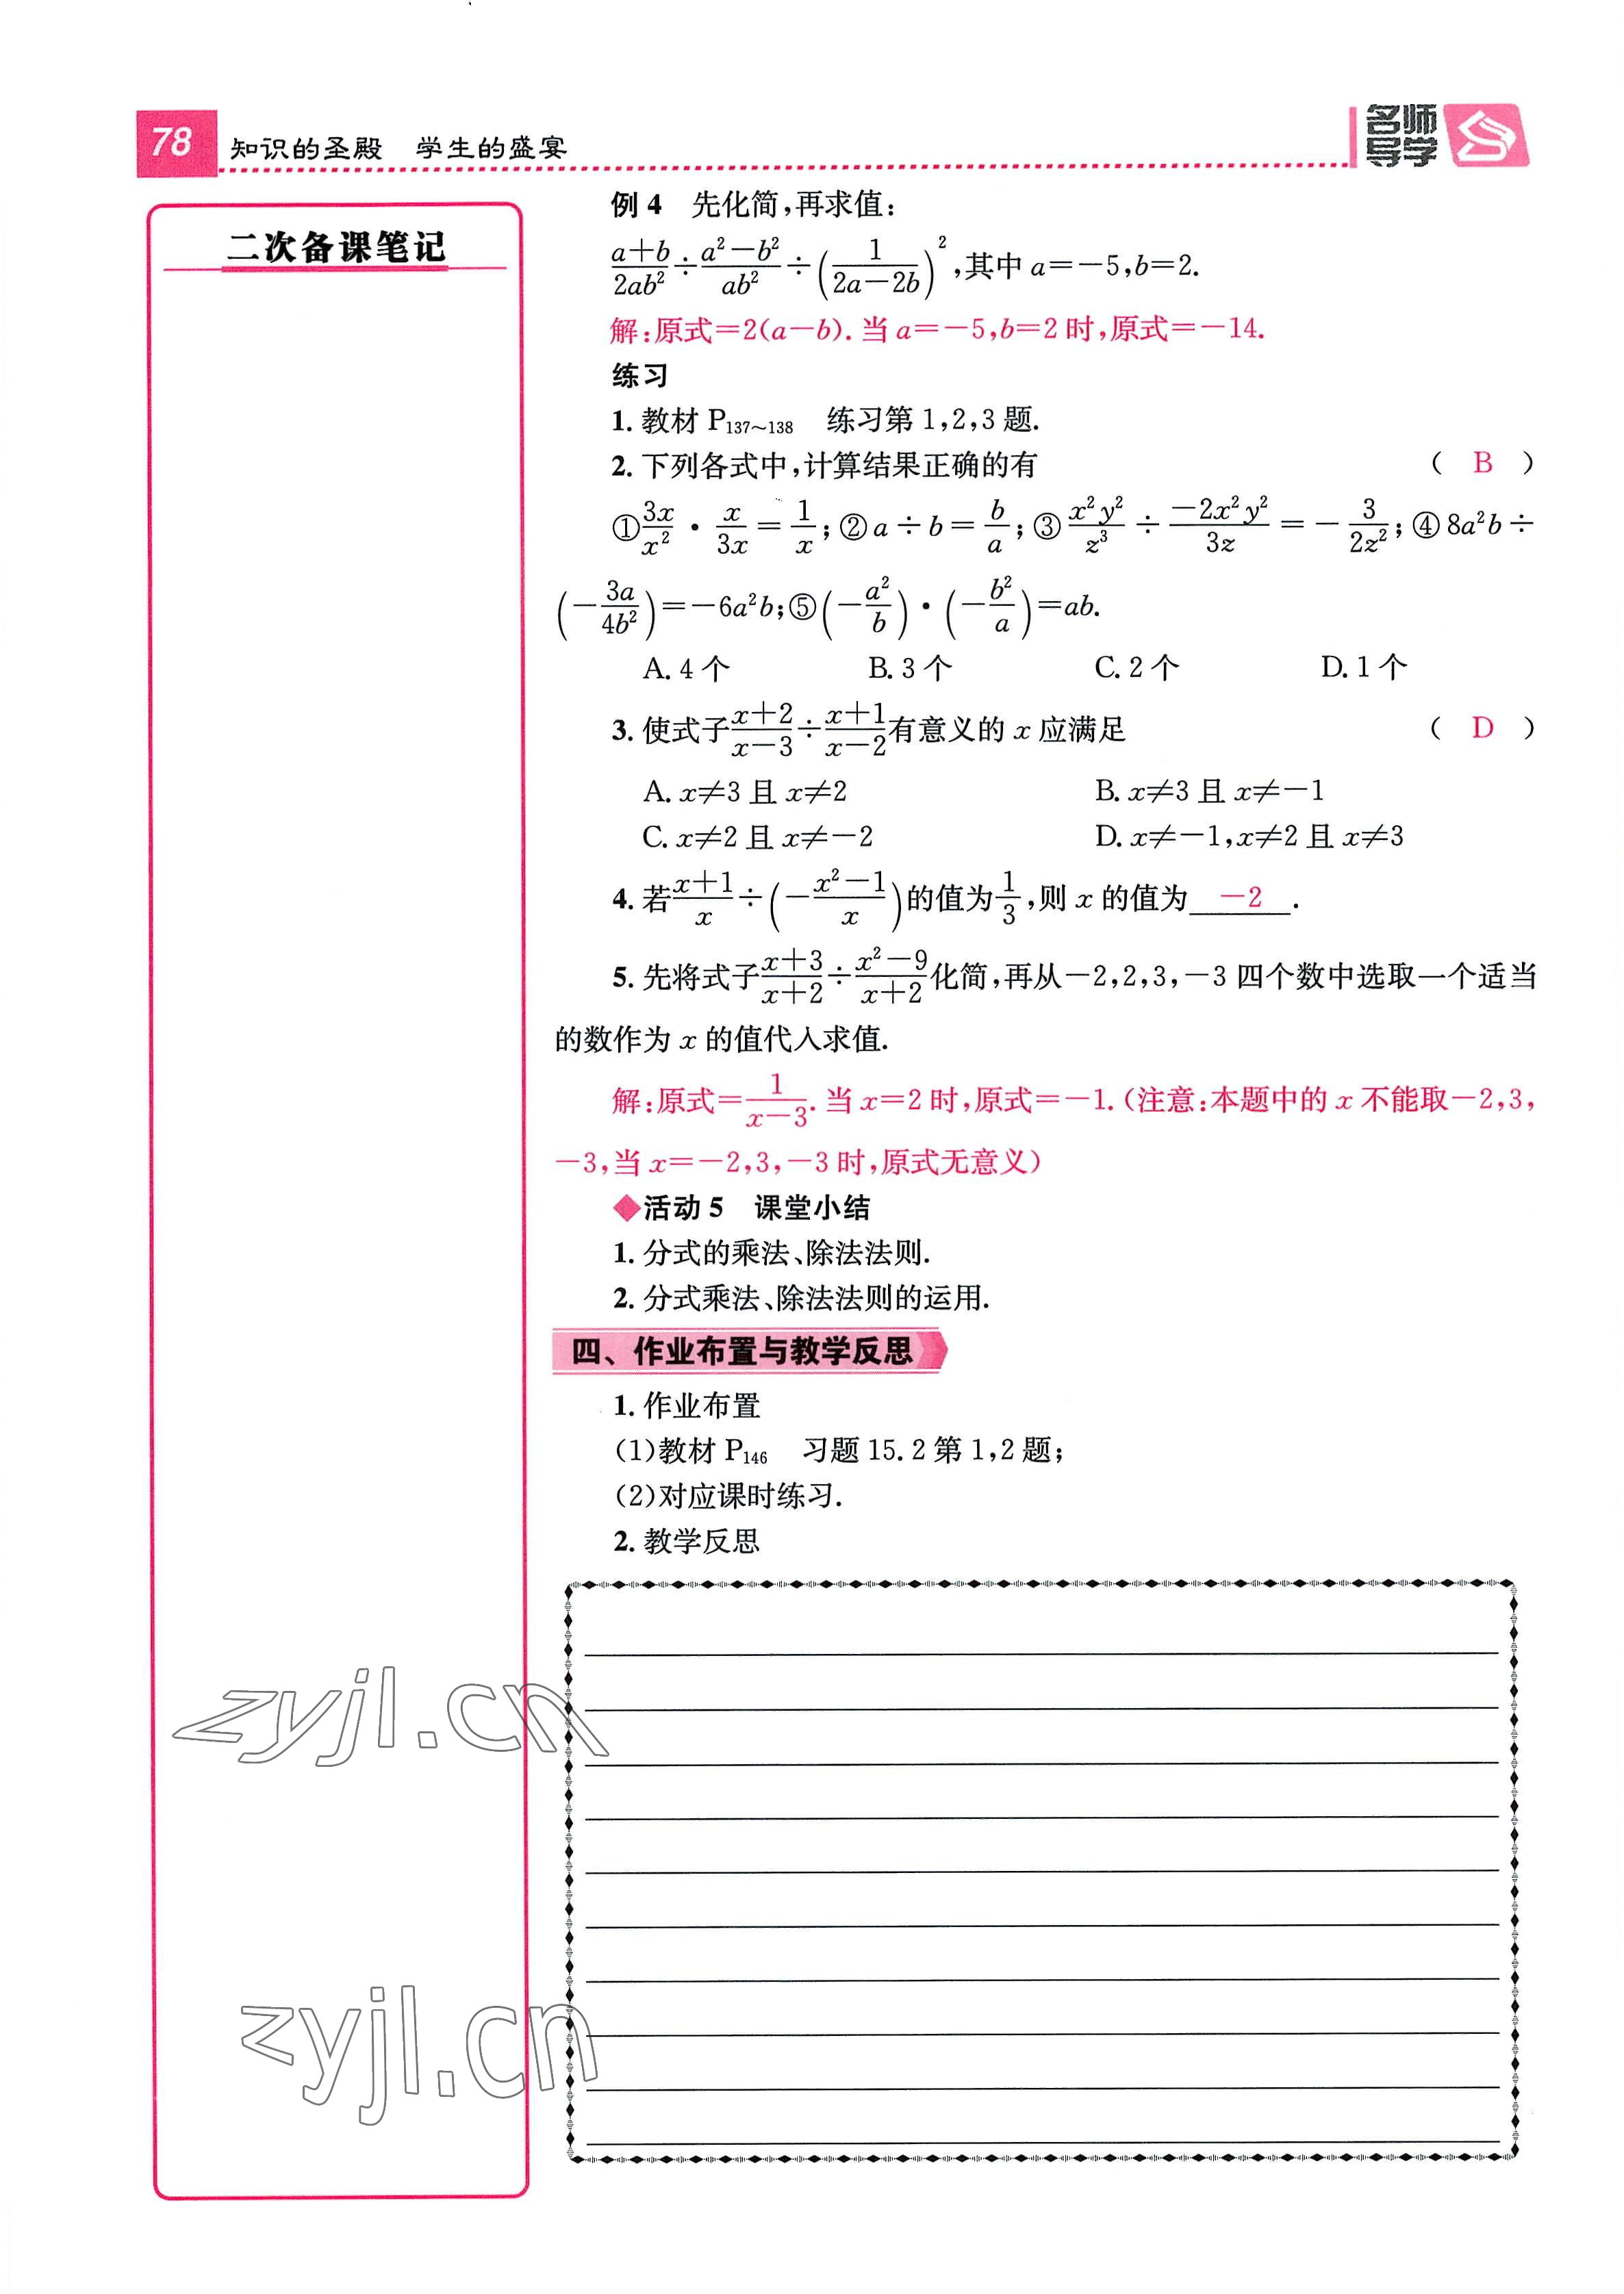 78 知识的圣殿 学生的盛宴
名师导学
二次备课笔记
例 4 先化简,再求值:
\frac{a+b}{2ab²}÷\frac{a²-b²}{ab²}÷(\frac{1}{2a-2b})²,其中 a=-5,b=2.
解:原式=2(a-b).当 a=-5,b=2 时,原式=-14.
练习
1. 教材 P₁₃₇~₁₃₈ 练习第 1,2,3 题.
2. 下列各式中,计算结果正确的有 ( B )
①\frac{3x}{x²}·\frac{x}{3x}=\frac{1}{x};②a÷b=\frac{b}{a};③\frac{x²y²}{z³}÷\frac{-2x²y²}{3z}=-\frac{3}{2z²};④8a²b÷
(-\frac{3a}{4b²})=-6a²b;⑤(-\frac{a²}{b})·(-\frac{b²}{a})=ab.
A. 4 个 B. 3 个 C. 2 个 D. 1 个
3. 使式子\frac{x+2}{x-3}÷\frac{x+1}{x-2}有意义的 x 应满足 ( D )
A. x≠3 且 x≠2 B. x≠3 且 x≠-1
C. x≠2 且 x≠-2 D. x≠-1,x≠2 且 x≠3
4. 若\frac{x+1}{x}÷(-\frac{x²-1}{x})的值为\frac{1}{3},则 x 的值为 -2 .
5. 先将式子\frac{x+3}{x+2}÷\frac{x²-9}{x+2}化简,再从-2,2,3,-3 四个数中选取一个适当
的数作为 x 的值代入求值.
解:原式=\frac{1}{x-3}.当 x=2 时,原式=-1.(注意:本题中的 x 不能取-2,3,
-3,当 x=-2,3,-3 时,原式无意义)
◆活动 5 课堂小结
1. 分式的乘法、除法法则.
2. 分式乘法、除法法则的运用.
四、作业布置与教学反思
1. 作业布置
(1)教材 P₁₄₆ 习题 15.2 第 1,2 题;
(2)对应课时练习.
2. 教学反思
zyjl.cn
zyjl.cn